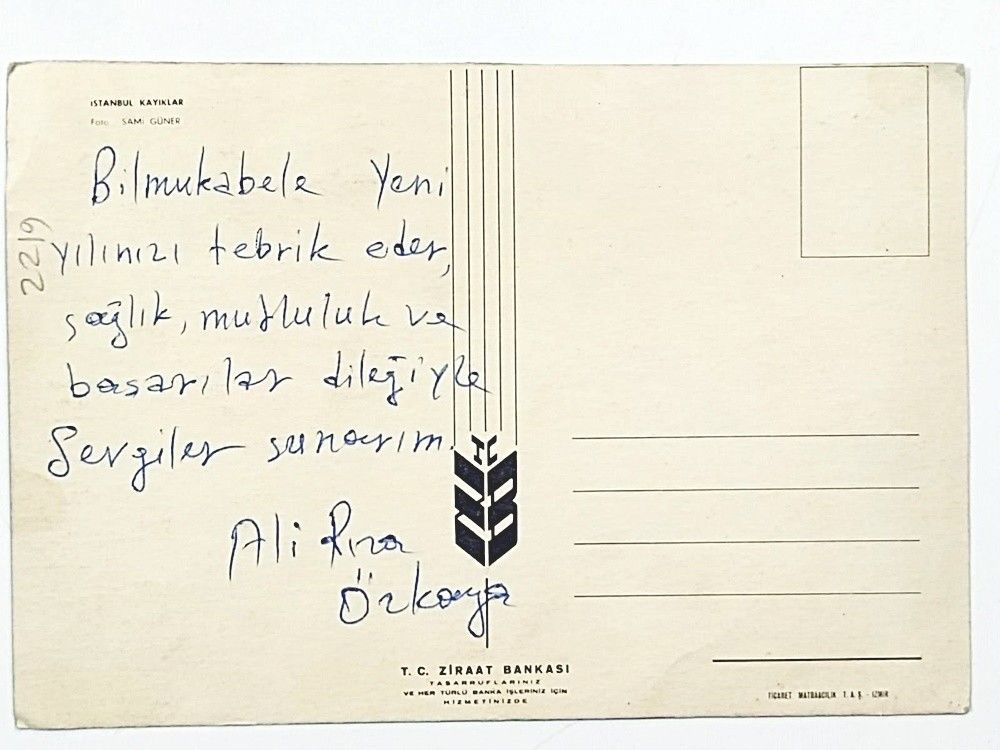 İSTANBUL KAYIKLAR
Foto: SAMİ GÜNER
Bilmukabele Yeni
yılınızı tebrik eder,
sağlık, mutluluk ve
başarılar dileğiyle
Sevgiler sunarım.
Ali Rıza
Özkaya
2219
T. C. ZİRAAT BANKASI
TASARRUFLARINIZ
VE HER TÜRLÜ BANKA İŞLERİNİZ İÇİN
HİZMETİNİZDE
TİCARET MATBAACILIK T. A. Ş. - İZMİR